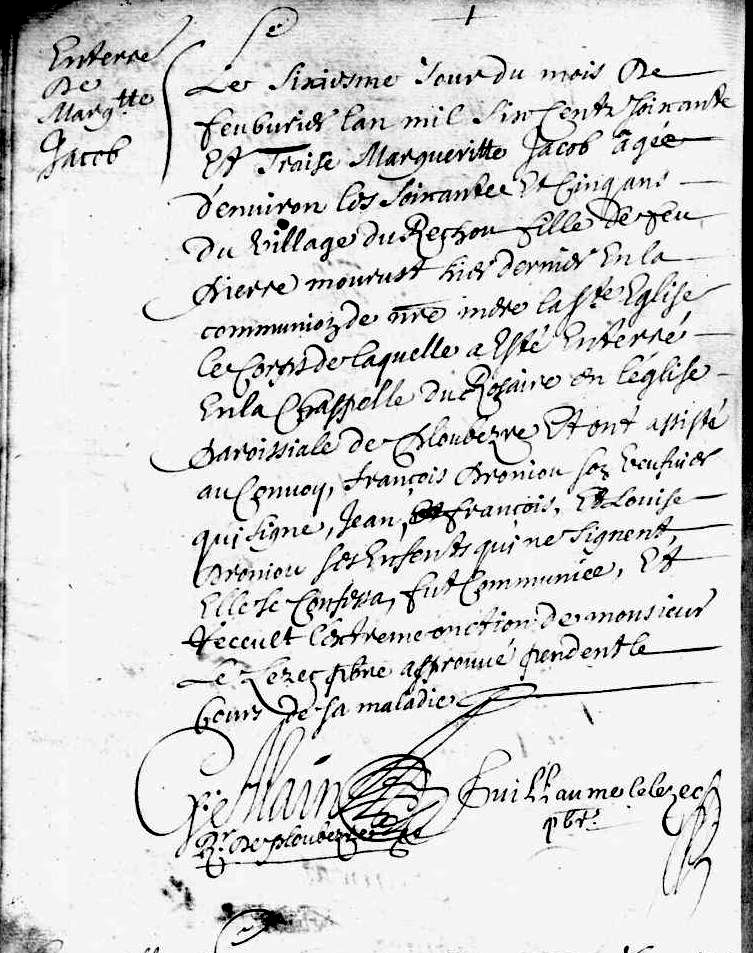 Enterre
De
Margtte
Jacob
Le Sixiesme Jour du mois De
feuburier lan mil Six Centz Soixante
Et Traise Margueritte Jacob âgée
d'enuiron les Soixantee Et Cinq ans
du Village du Rechou fille de feu
Pierre mourust hier dernier En la
communion de nre mere la Ste Eglise
le Corps de laquelle a Esté Enterré
En la Chappelle du Rosaire en l'église
Paroissiale de Ploubezre Et ont assisté
au Conuoy, françois Droniou son
qui signe, Jean, françois, Et Louise
Droniou ses Enfents qui ne signent,
Elle se Confessa, fut Communiee, Et
Receult l'extreme onction de monsieur
Le Lezec pbre approuué pendent le
Cours de sa maladie
Alain
Rr De ploubezre
Guillaume lelezec
pbre